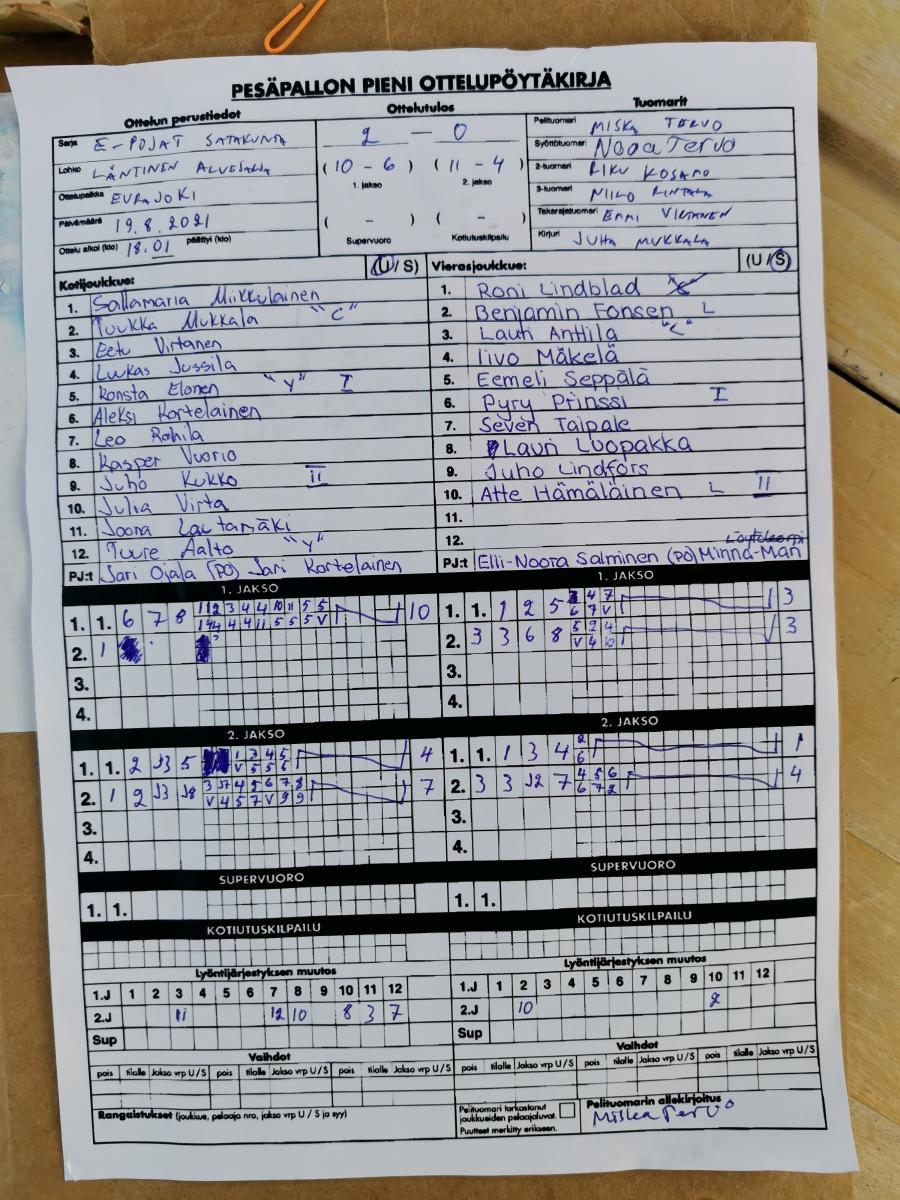 PESÄPALLON PIENI OTTELUPÖYTÄKIRJA
Ottelun perustiedot Ottelutulos Tuomarit
Sarja E-POJAT SATAKUNTA
Lohko LÄNTINEN ALUESARJA
Ottelupaikka EURAJOKI
Päivämäärä 19.8.2021
Ottelu alkoi (klo) 18.01 päättyi (klo)
2 - 0
( 10 - 6 ) ( 11 - 4 )
1. jakso 2. jakso
( - ) ( - )
Supervuoro Kotiutuskilpailu
Pelituomari MISKA TERVO
Syöttötuomari Nooa TERVO
2-tuomari RIKU KOSAMO
3-tuomari NIILO RINTALA
Takarajatuomari EMMI VIRTANEN
Kirjuri JUHA MUKKALA
Kotijoukkue: (U / S)
1. Sallamaria Miikkulainen
2. Tuukka Mukkala "C"
3. Eetu Virtanen
4. Luukas Jussila
5. Konsta Elonen "Y" I
6. Aleksi Kortelainen
7. Leo Rohila
8. Kasper Vuorio
9. Juho Kukko II
10. Julia Virta
11. Joona Lautamäki
12. Tuure Aalto "Y"
PJ:t Jari Ojala (PO) Jari Kortelainen
Vierasjoukkue: (U / S)
1. Roni Lindblad
2. Benjamin Fonsen L
3. Lauri Anttila "C"
4. Iivo Mäkelä
5. Eemeli Seppälä
6. Pyry Prinssi I
7. Seven Taipale
8. Lauri Luopakka
9. Juho Lindfors
10. Atte Hämäläinen L II
11.
12.
PJ:t Elli-Noora Salminen (PO) Minna-Mari
1. JAKSO
1. 1. 6 7 8 10
2. 1
3.
4.
2. JAKSO
1. 1. 2 J3 5 4
2. 1 2 J3 J8 7
3.
4.
SUPERVUORO
1. 1.
KOTIUTUSKILPAILU
1. JAKSO
1. 1. 1 2 5 3
2. 3 3 6 8 3
3.
4.
2. JAKSO
1. 1. 1 3 4 1
2. 3 3 J2 7 4
3.
4.
SUPERVUORO
1. 1.
KOTIUTUSKILPAILU
Lyöntijärjestyksen muutos
1.J 1 2 3 4 5 6 7 8 9 10 11 12
2.J 11 12 10 8 3 7
Sup
Vaihdot
pois tilalle Jakso vrp U / S pois tilalle Jakso vrp U / S pois tilalle Jakso vrp U / S
Lyöntijärjestyksen muutos
1.J 1 2 3 4 5 6 7 8 9 10 11 12
2.J 10 2
Sup
Vaihdot
pois tilalle Jakso vrp U / S pois tilalle Jakso vrp U / S pois tilalle Jakso vrp U / S
Rangaistukset (joukkue, pelaaja nro, jakso vrp U / S ja syy)
Pelituomari tarkastanut
joukkueiden pelaajaluvat.
Puutteet merkitty erikseen.
Pelituomarin allekirjoitus
Miska Tervo